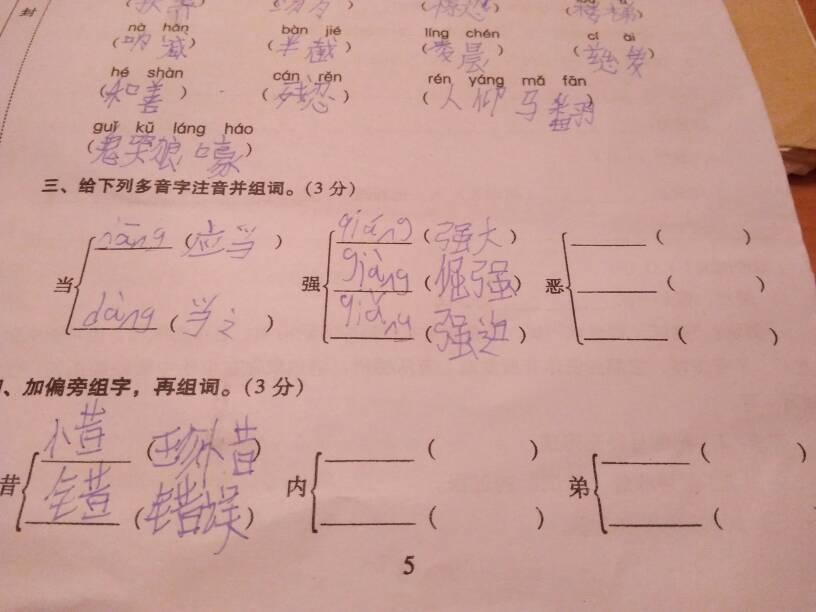 封
nà hǎn bàn jié líng chén cí ài
(呐喊) (半截) (凌晨) (慈爱)
hé shàn cán rěn rén yáng mǎ fān
(和善) (残忍) (人仰马翻)
guǐ kū láng háo
(鬼哭狼嚎)
三、给下列多音字注音并组词。(3分)
当 (应当) 强 qiáng (强大) 恶 ( )
jiàng (倔强) ( )
dàng qiǎng (强迫) ( )
、加偏旁组字，再组词。(3分)
昔 惜 (珍惜) 内 ( ) 弟 ( )
错 (错误) ( ) (
5